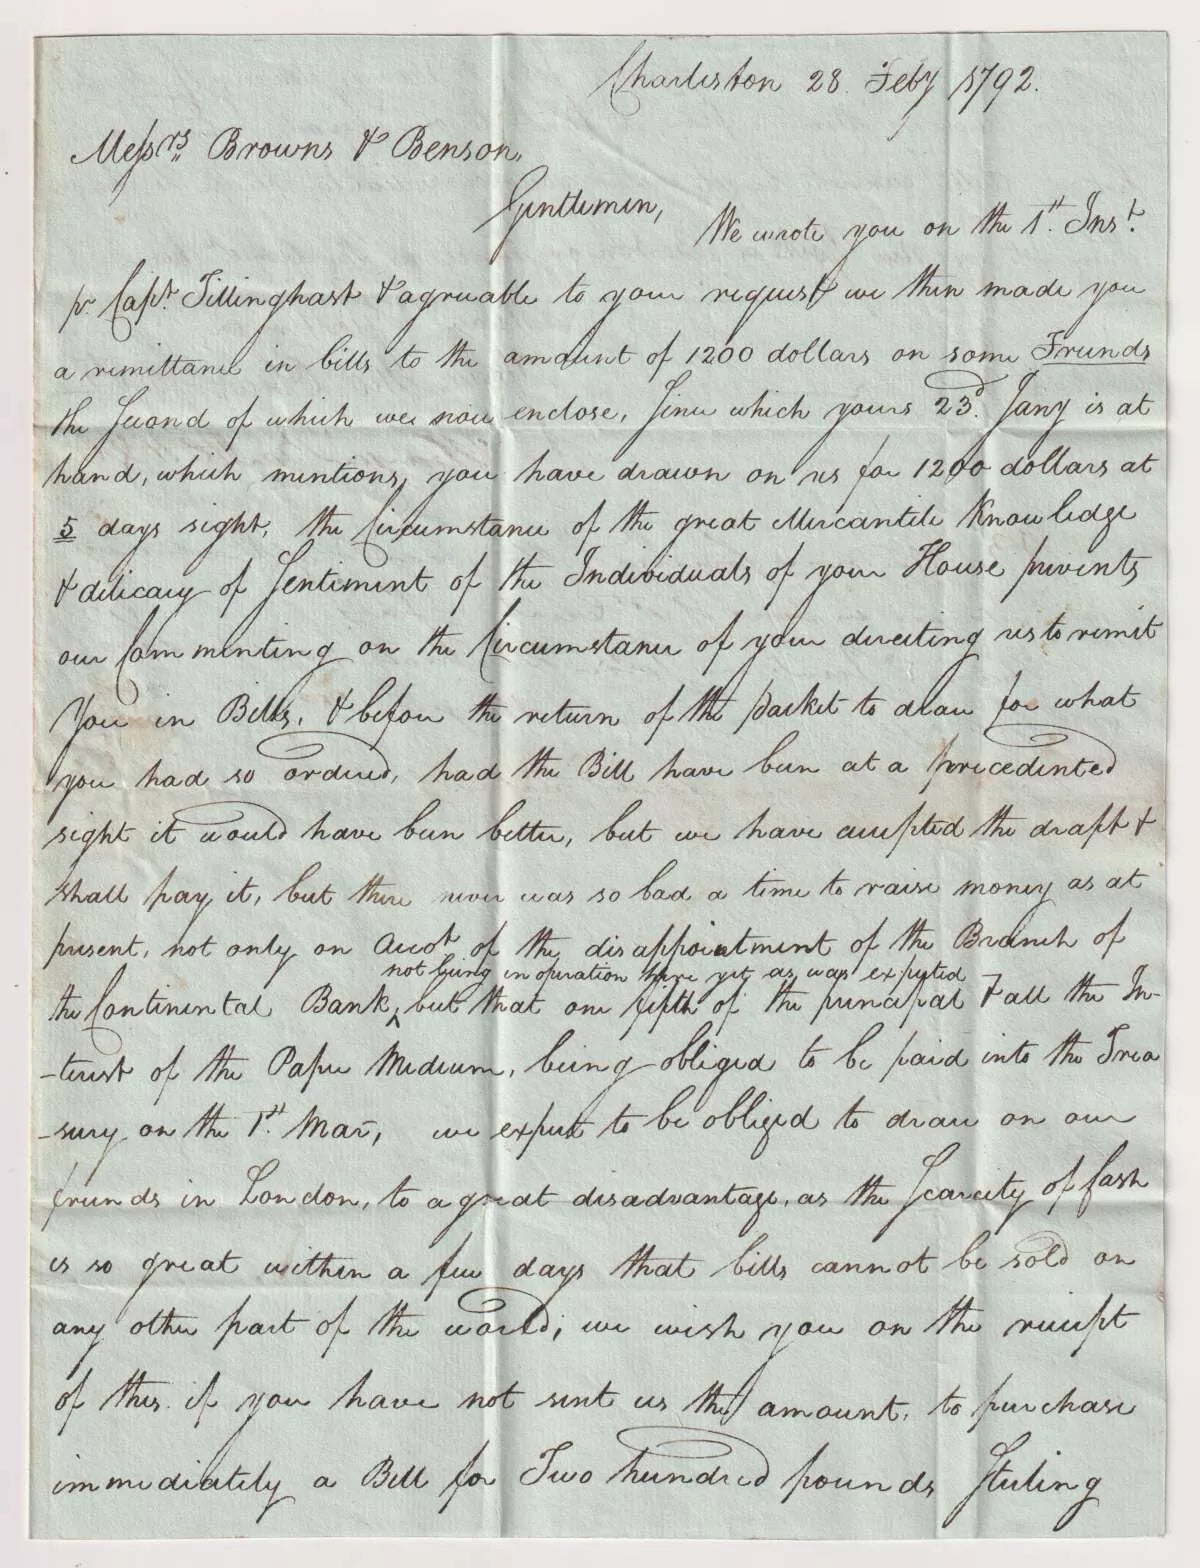 Charleston 28 Feby 1792.
Messrs Browns & Benson,
Gentlemen,
We wrote you on the 1st. Inst.
pr Capt. Tillinghast & agreeable to your request we then made you
a remittance in bills to the amount of 1200 dollars on some Friends
the Second of which we now enclose, Since which yours 23d. Jany is at
hand, which mentions, you have drawn on us for 1200 dollars at
5 days sight, the Circumstance of the great Mercantile Knowledge
& delicacy of Sentiment of the Individuals of your House prevents
our Commenting on the Circumstance of your directing us to remit
You in Bills, & before the return of the packet to draw for what
you had so ordered, had the Bill have been at a precedented
sight it would have been better, but we have accepted the draft &
shall pay it, but there never was so bad a time to raise money as at
present, not only on Accot. of the disappointment of the Branch of
not being in operation here yet as was expected
the Continental Bank, but that one fifth of the principal & all the In-
-terest of the Paper Medium, being obliged to be paid into the Trea
-sury on the 1st. Mar, we expect to be obliged to draw on our
friends in London, to a great disadvantage, as the Scarcity of Cash
is so great within a few days that bills cannot be sold on
any other part of the world; we wish you on the receipt
of this if you have not sent us the amount, to purchase
immediately a Bill for Two hundred pounds Sterling